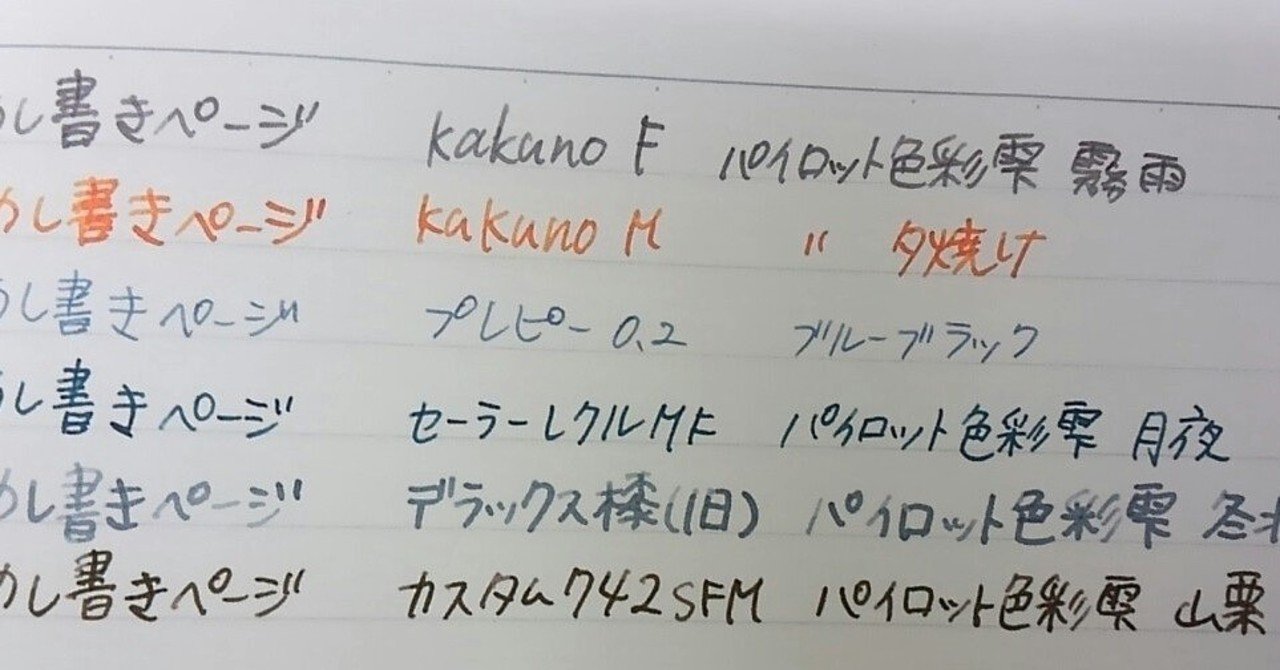 し書きページ kakuno F パイロット色彩雫 霧雨
めし書きページ kakuno M 〃 夕焼け
し書きページ プレピー 0.2 ブルーブラック
し書きページ セーラーレクルMF パイロット色彩雫 月夜
めし書きページ デラックス漆(旧) パイロット色彩雫 冬
めし書きページ カスタム742SFM パイロット色彩雫 山栗